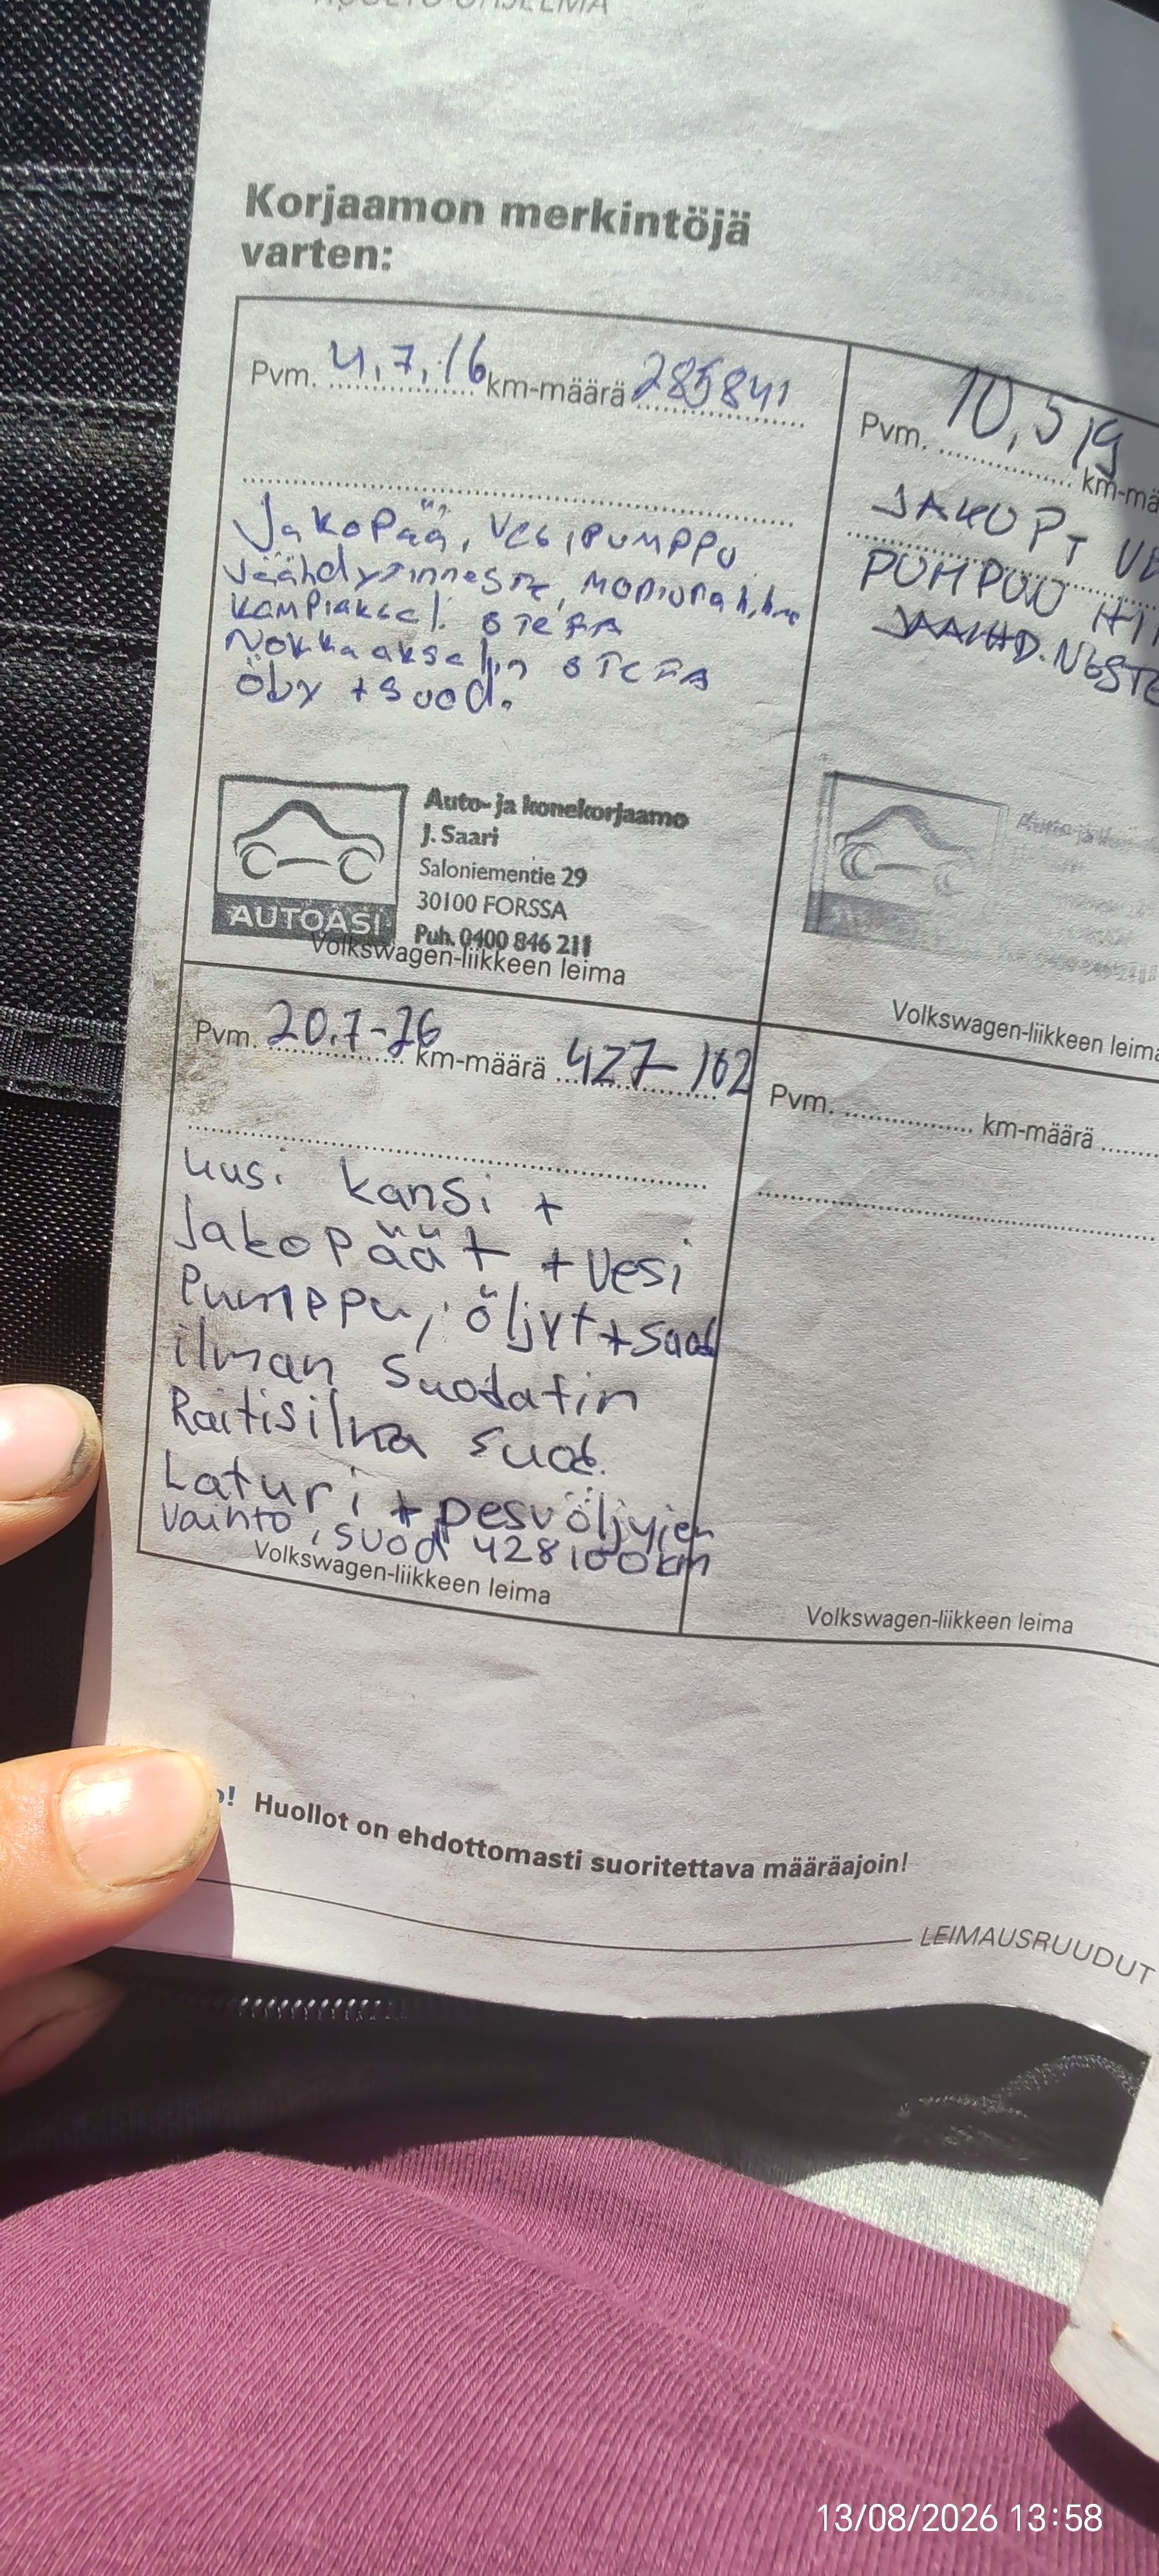 Korjaamon merkintöjä
varten:
Pvm. 4.7.16 km-määrä 285841
Jakopää, vesipumppu
Jäähdytinneste, moniurahihna
kampiaksel. STEFA
Nokka akselin STEFA
Öljy + suod.
AUTOASI
Auto- ja konekorjaamo
J. Saari
Saloniementie 29
30100 FORSSA
Puh. 0400 846 211
Volkswagen-liikkeen leima
Pvm. 10.5 19
km-mä
JAKOP
PUMPPU
JÄÄHD. NESTE
Volkswagen-liikkeen leima
Pvm. 20.7-26 km-määrä 427-102
Uusi kansi +
Jakopäät + Vesi
Pumppu, öljyt + suod
ilman suodatin
Raitisilma suod.
Laturi + pesuöljyjen
Vaihto, suod 428100km
Volkswagen-liikkeen leima
Pvm. km-määrä
Volkswagen-liikkeen leima
o! Huollot on ehdottomasti suoritettava määräajoin!
LEIMAUSRUUDUT
13/08/2026 13:58